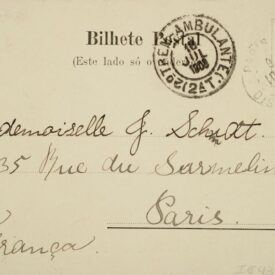 Bilhete Postal
(Este lado só o
AMBULANTE
1906
(2A T.)
demoiselle J. Schmidt
35 Rue du Surmelin
Paris.
França.